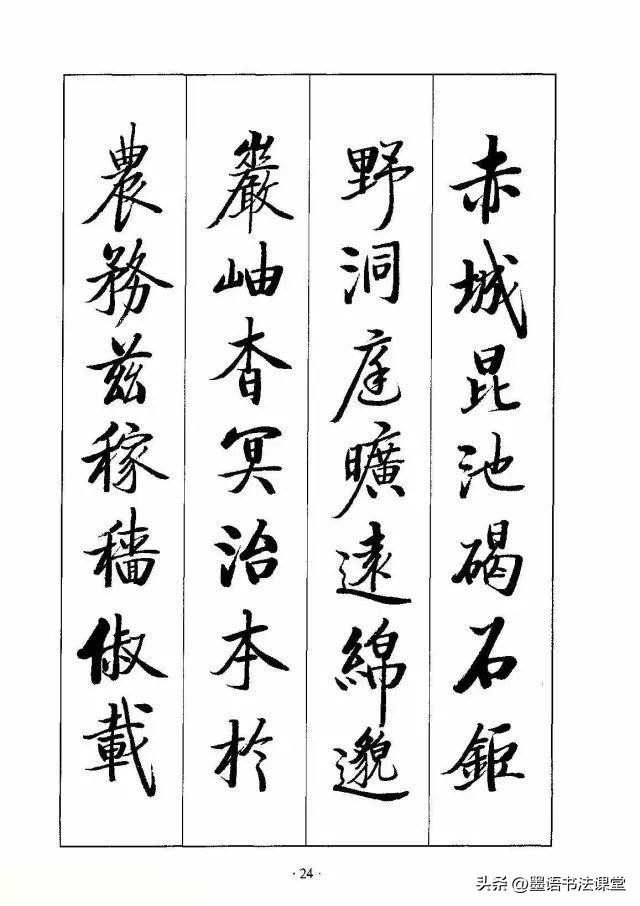 赤城昆池碣石鉅
野洞庭曠遠綿邈
巖岫杳冥治本於
農務茲稼穡俶載
·24·
头条@墨语书法课堂